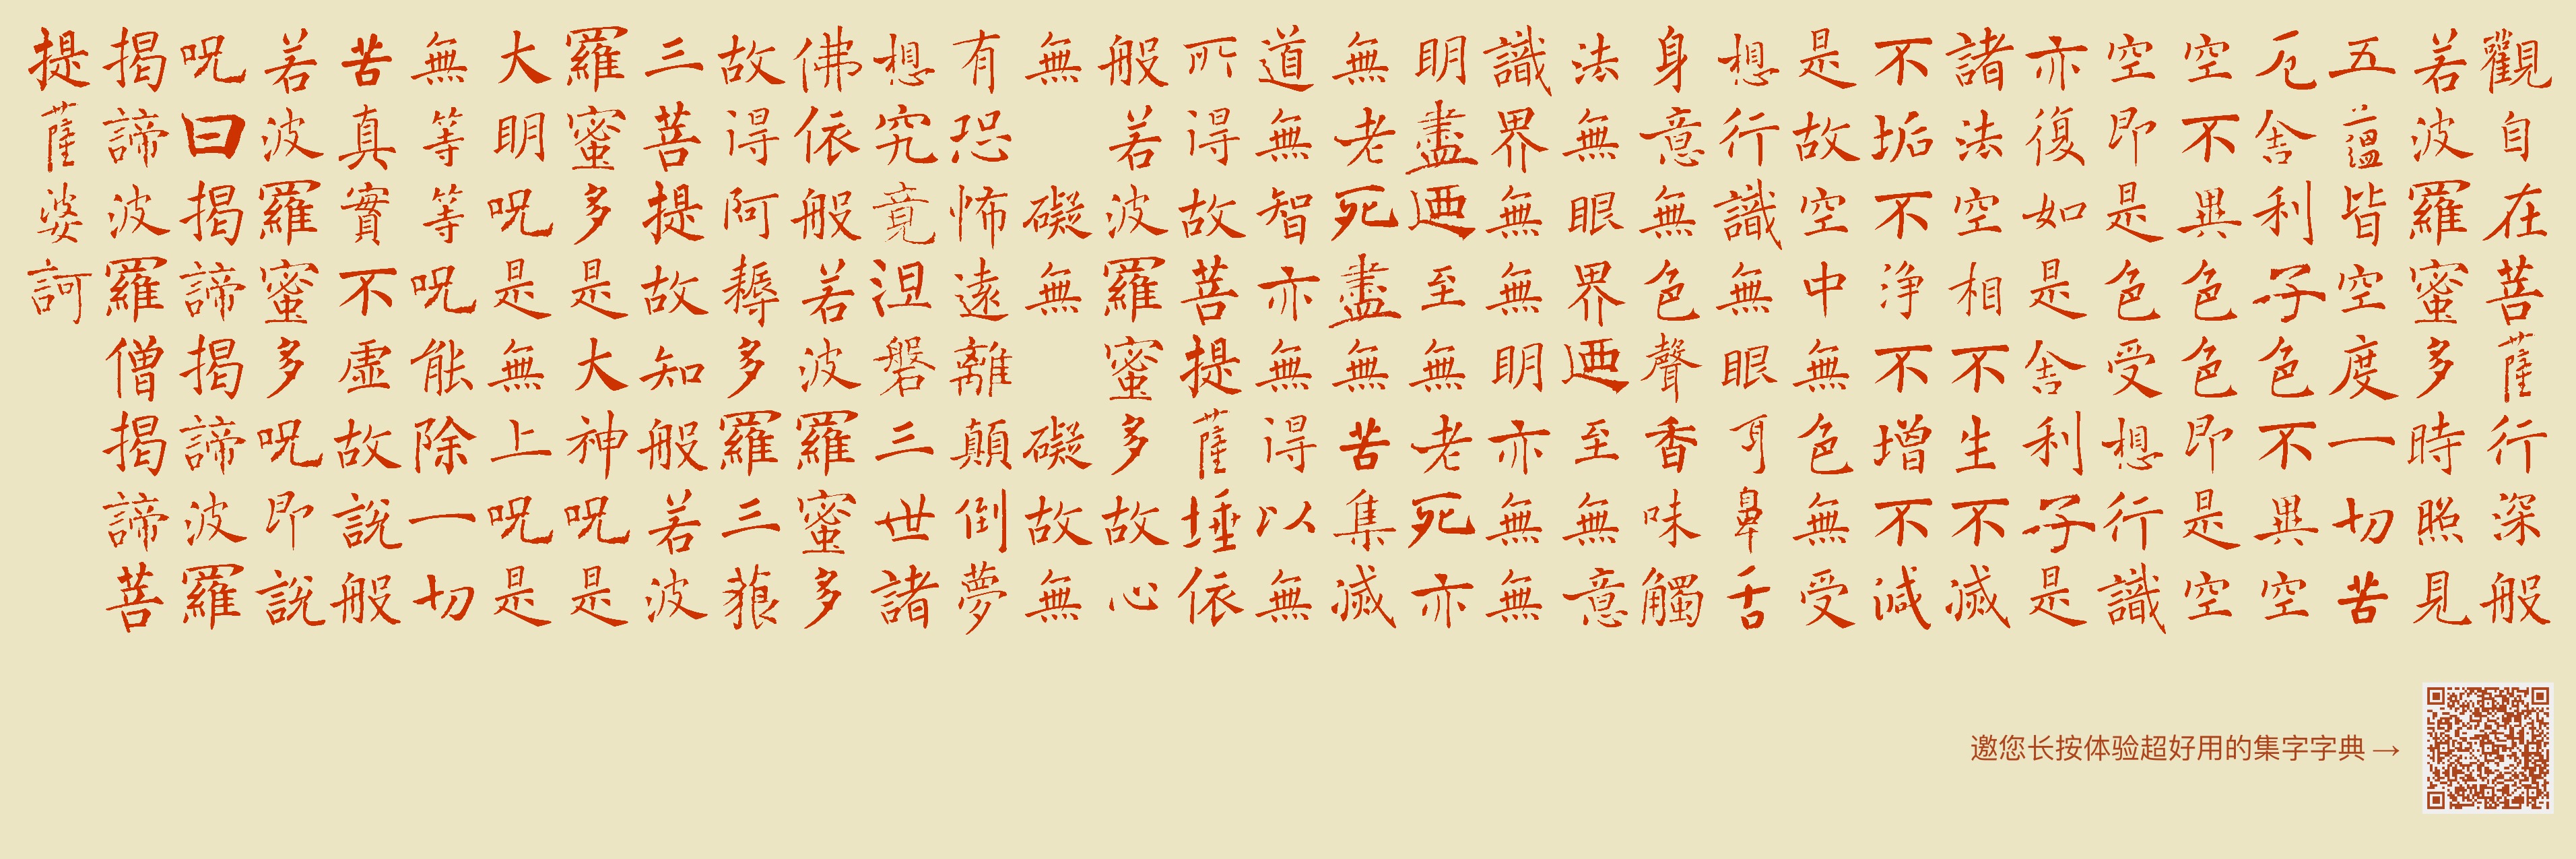 觀自在菩薩行深般
若波羅蜜多時照見
五蘊皆空度一切苦
厄舍利子色不異空
空不異色色即是空
空即是色受想行識
亦復如是舍利子是
諸法空相不生不滅
不垢不淨不增不減
是故空中無色無受
想行識無眼耳鼻舌
身意無色聲香味觸
法無眼界迺至無意
識界無無明亦無無
明盡迺至無老死亦
無老死盡無苦集滅
道無智亦無得以無
所得故菩提薩埵依
般若波羅蜜多故心
無 礙無 礙故無
有恐怖遠離顛倒夢
想究竟涅槃三世諸
佛依般若波羅蜜多
故得阿耨多羅三藐
三菩提故知般若波
羅蜜多是大神呪是
大明呪是無上呪是
無等等呪能除一切
苦真實不虛故說般
若波羅蜜多呪即說
呪曰揭諦揭諦波羅
揭諦波羅僧揭諦菩
提薩婆訶
邀您长按体验超好用的集字字典→